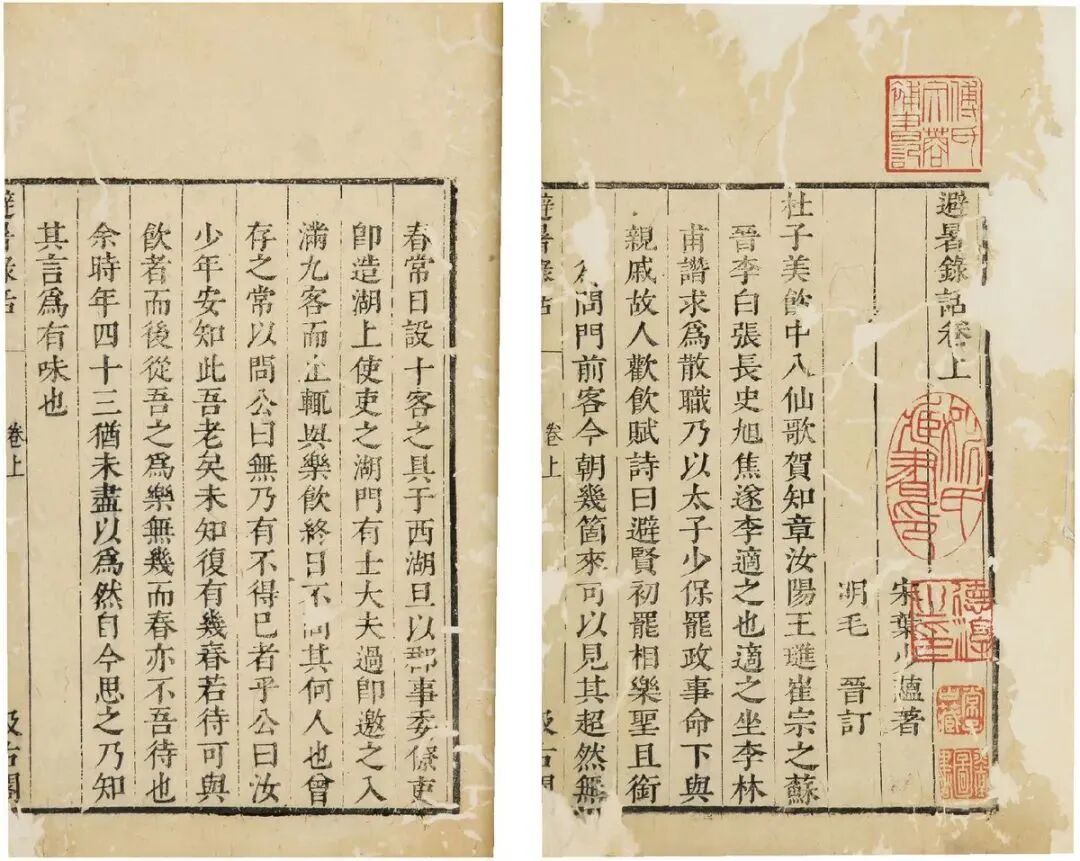 避暑錄話卷上
宋葉少蘊著
明毛 晉訂
杜子美飲中八仙歌賀知章汝陽王璡崔宗之蘇
晉李白張長史旭焦遂李適之也適之坐李林
甫譖求爲散職乃以太子少保罷政事命下與
親戚故人歡飲賦詩曰避賢初罷相樂聖且銜
爲問門前客今朝幾箇來可以見其超然無
避暑錄話 卷上 一 汲古閣
春常日設十客之具于西湖旦以郡事委僚吏
卽造湖上使吏之湖門有士大夫過卽邀之入
滿九客而止輒與樂飲終日不問其何人也曾
存之常以問公曰無乃有不得已者乎公曰汝
少年安知此吾老矣未知復有幾春若待可與
飲者而後從吾之爲樂無幾而春亦不吾待也
余時年四十三猶未盡以爲然自今思之乃知
其言爲有味也
避暑錄話 卷上 汲古閣